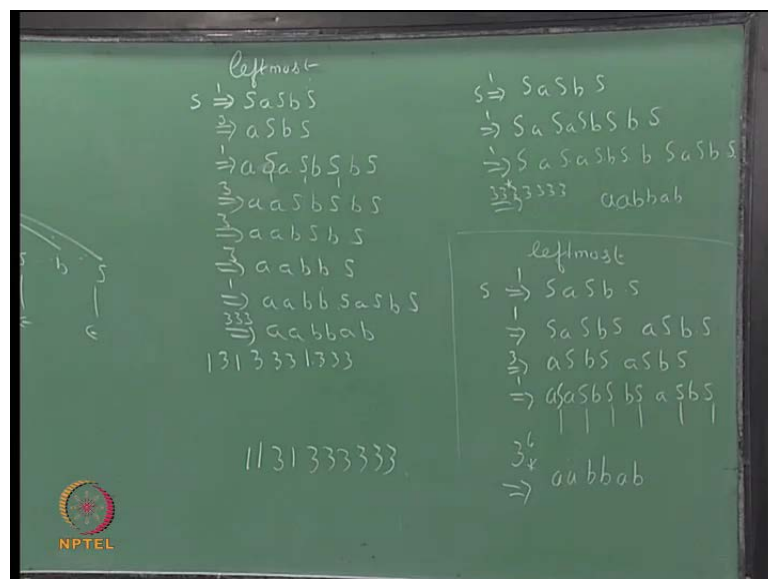 leftmost
S ⇒¹ S a S b S
⇒³ a S b S
⇒¹ a S a S b S b S
⇒³ a a S b S b S
⇒³ a a b S b S
⇒³ a a b b S
⇒¹ a a b b S a S b S
⇒³³³ a a b b a b
1 3 1 3 3 3 1 3 3 3
1 1 3 1 3 3 3 3 3 3
S ⇒¹ S a S b S
⇒¹ S a S a S b S b S
⇒¹ S a S a S b S b S a S b S
⇒* 3333333 a a b b a b
leftmost
S ⇒¹ S a S b S
⇒¹ S a S b S a S b S
⇒³ a S b S a S b S
⇒¹ a S a S b S b S a S b S
3⁶
⇒* a a b b a b
S b S
ϵ ϵ
NPTEL